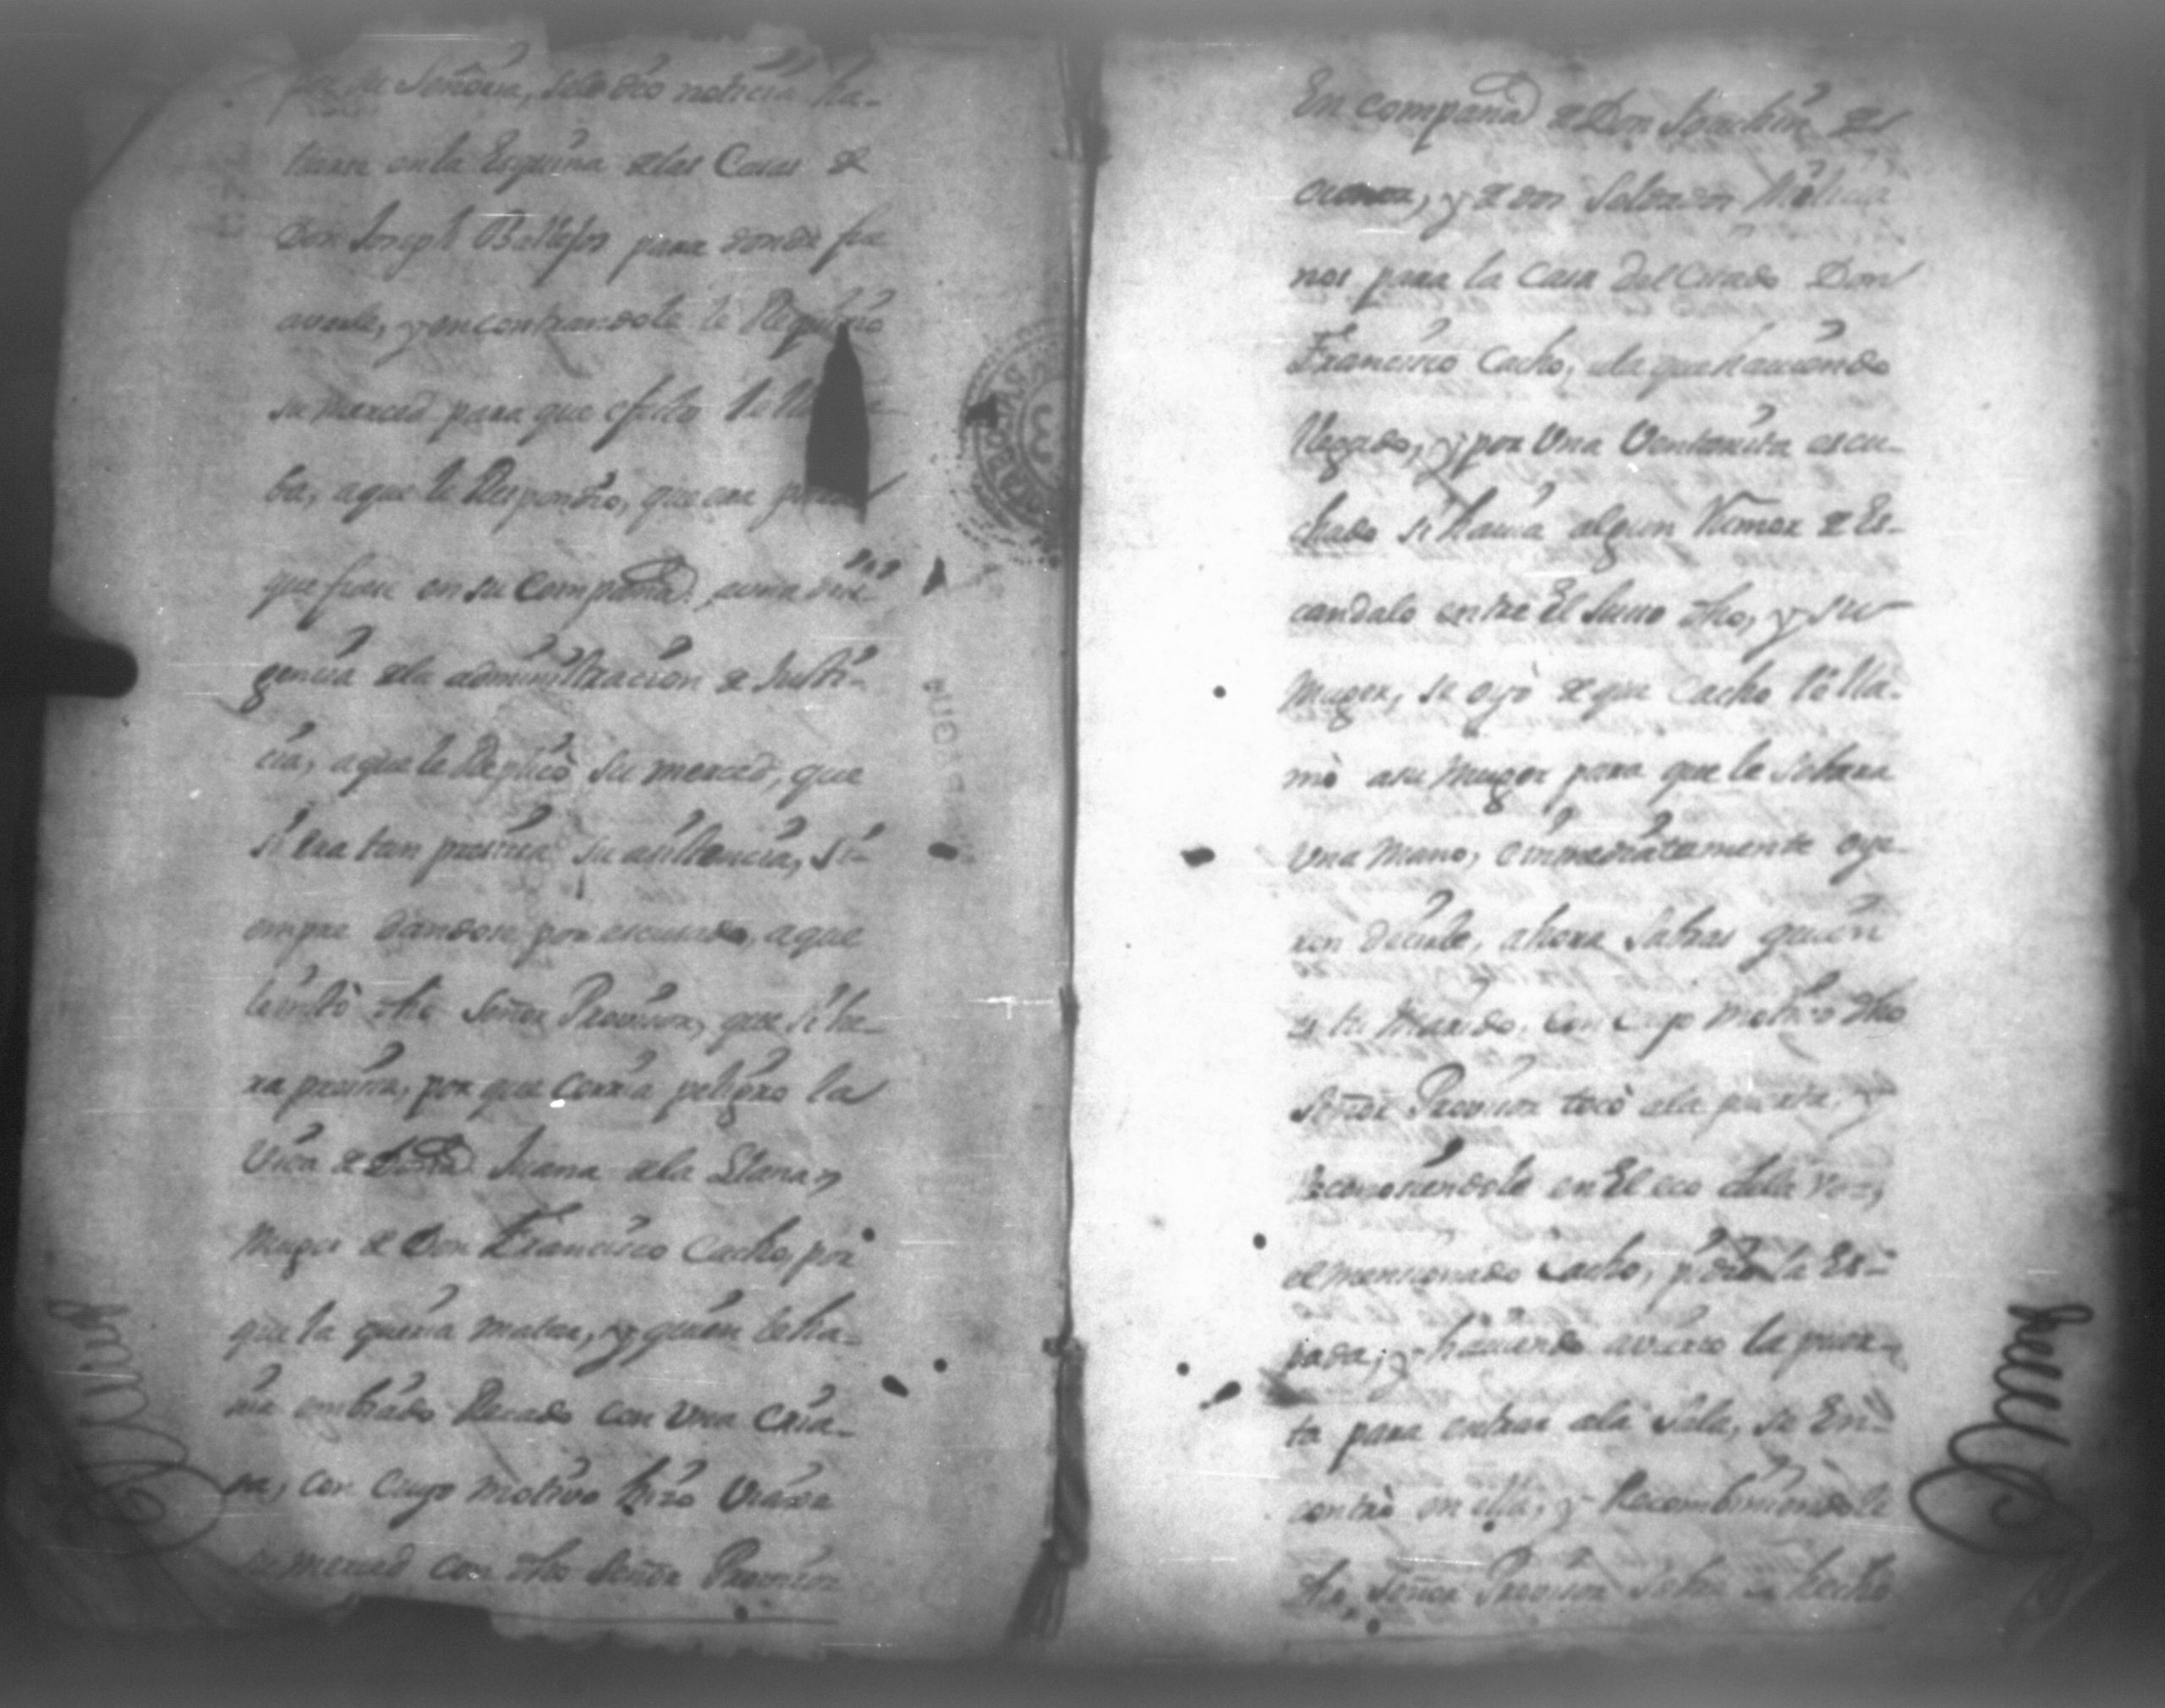 por su Señoria, se le dio noticia ha-
llarse en la Esquina de las Casas de
Don Joseph Ballejos para donde fue
averle, y encontrandole le
su merced para que efecto le
ba, a que le Respondio, que era
que fuese en su Compañia a una dili-
gencia de la administracion de Justi-
cia, a que le Replicó su merced, que
si era tan presisa su asistencia, si-
empre dandose por escusado, a que
le instó dho Señor Provisor, que si he-
ra presisa, por que corria peligro la
Vida de Doña Juana de la Llana,
Muger de Don Francisco Cacho, por
que la queria matar, y quien le ha-
via embiado Recado con una Cria-
da, con cuyo motivo hizo Viaxe
su merced con dho Señor Provisor
En compañia de Don Joachin de
y de Don Salvador
nos para la Casa del Citado Don
Francisco Cacho, a la que haviendo
llegado, y por Una Ventanita escu-
chado si havia algun Rumor de Es-
candalo entre El Suso dho, y su
Muger, se oyó de que Cacho lla-
mó a su Muger para que le Sobara
Una Mano, e inmediatamente oye-
ron decirle, ahora Sabras quien
es tu Marido. Con cuyo motivo dho
Señor Provisor tocó a la puerta, y
Reconosiendole en El eco de la Voz,
el mencionado Cacho, pidio la Es-
pada, y haviendo avierto la puer-
ta para entrar a la Sala, se En-
contró en ella, y Recombiniendole
dho Señor Provisor Sobre el hecho